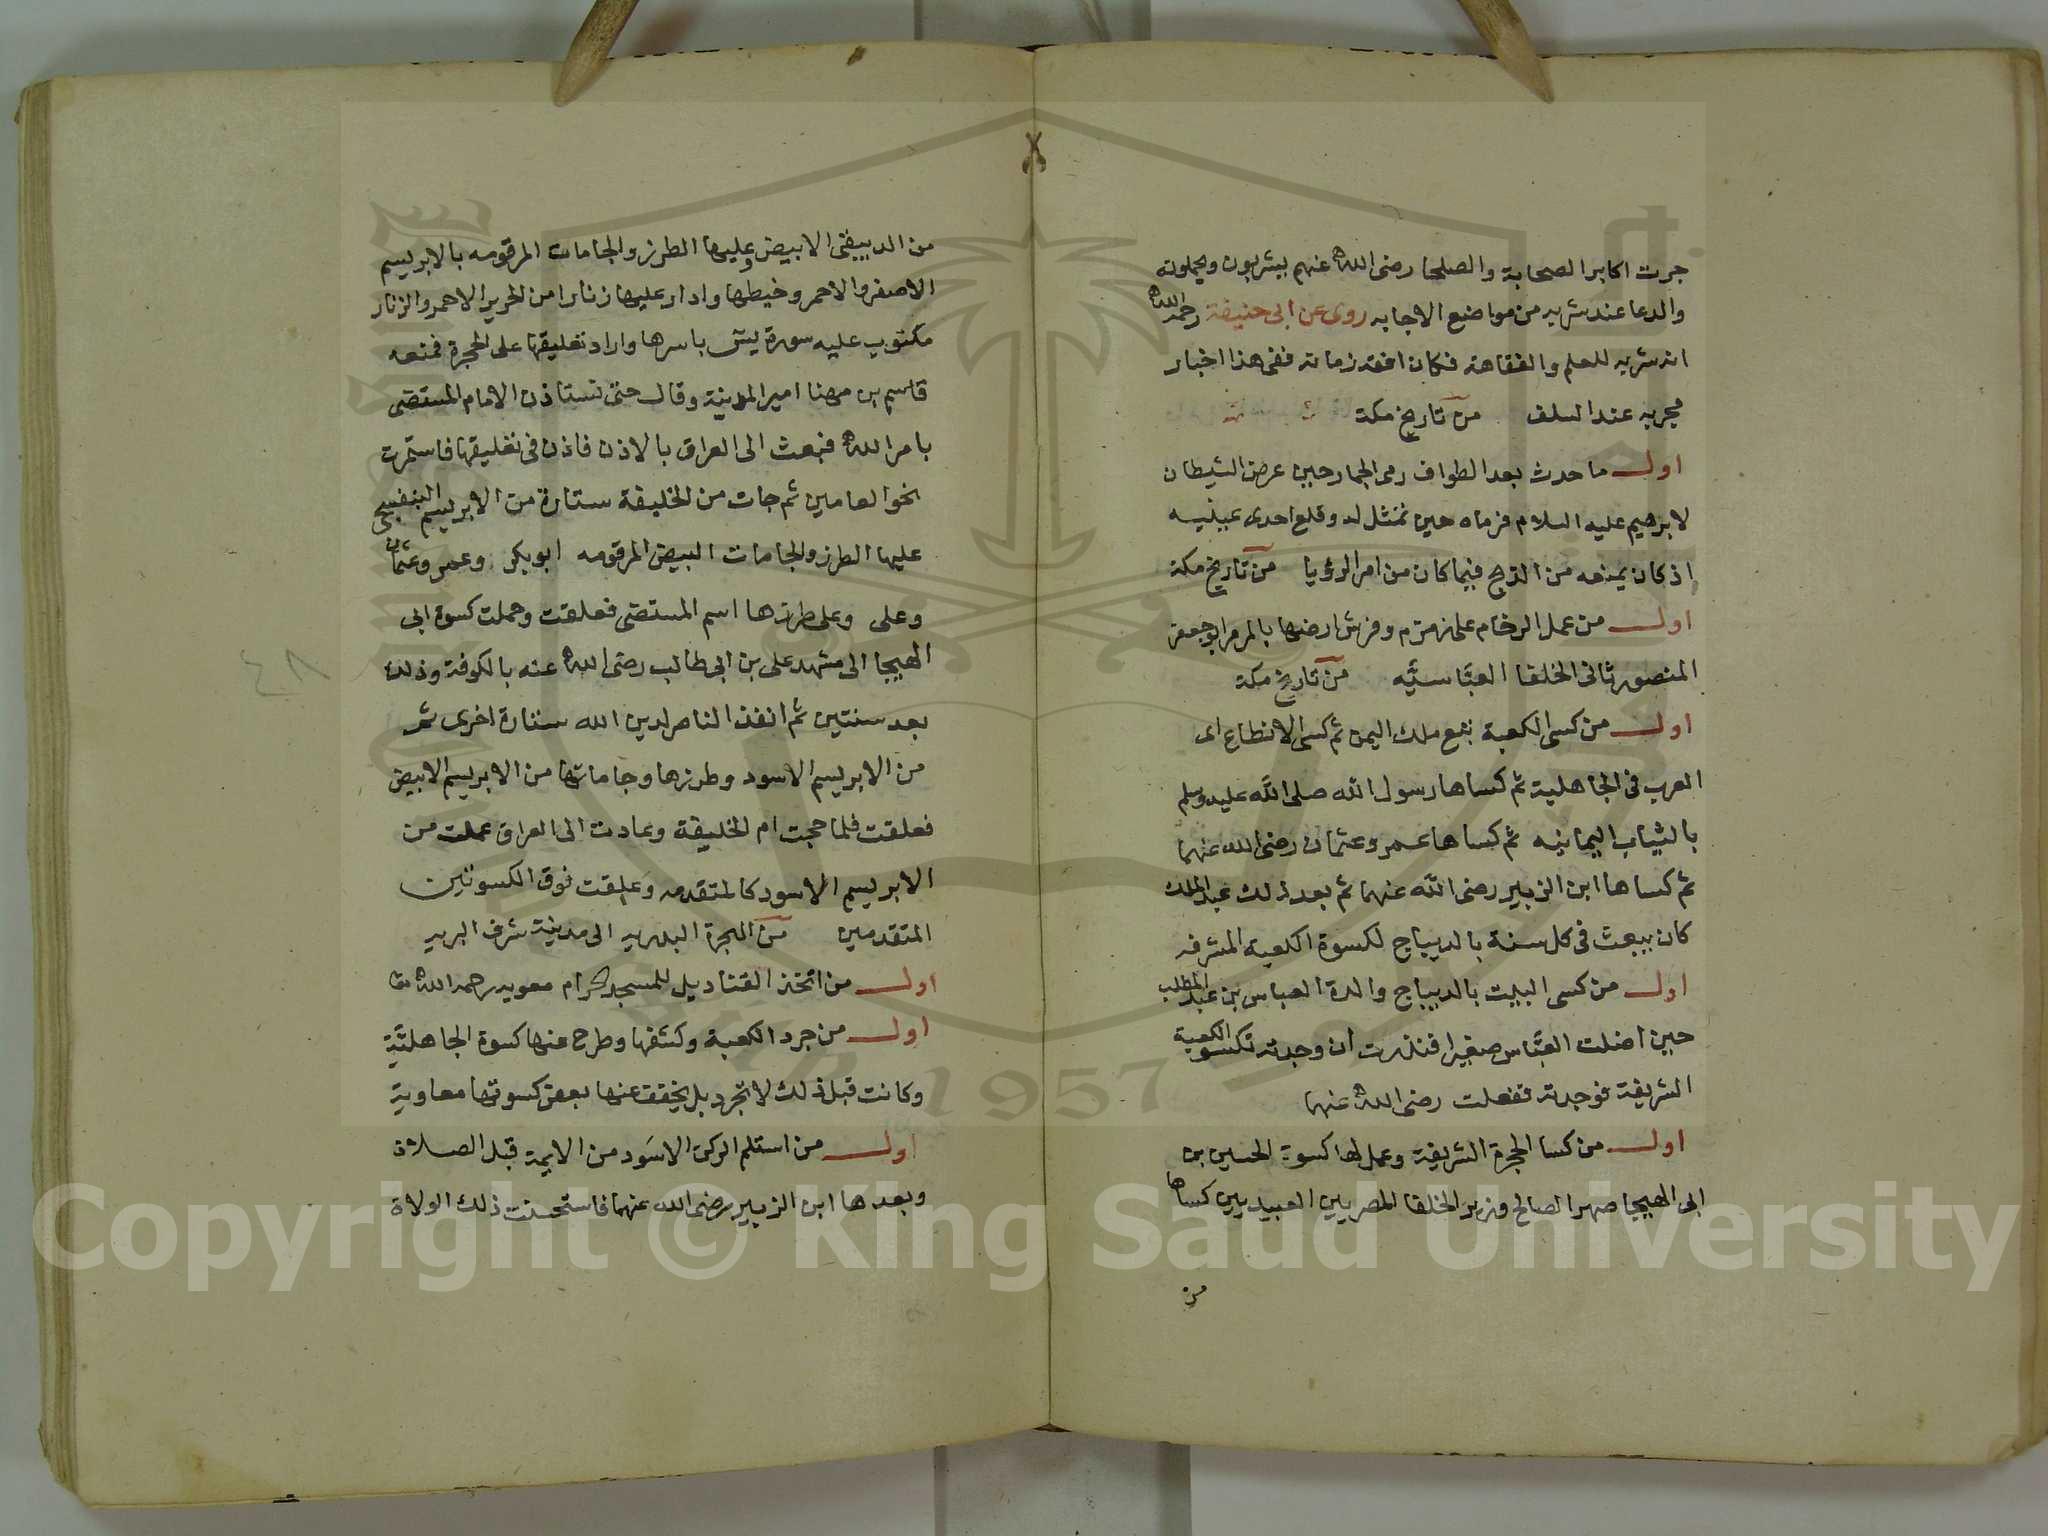 جرت اكابر الصحابة والصلحا رضى الله عنهم يشربون ويحملونه
والدعا عند شربه من مواضع الاجابه روى عن ابى حنيفة رحمه الله
انه شربه للعلم والفقاهة فكان افقه زمانه ففى هذا اخبار
مجربه عند السلف من تاريخ مكة
اول ما حدث بعد الطواف رمى الجمار حين عرض الشيطان
لابرهيم عليه السلام فرماه حين تمثل له وقلع احدى عينيه
اذ كان يمنعه من الذبح فيما كان من امر الرؤيا من تاريخ مكة
اول من عمل الرخام على زمزم وفرش ارضها بالمرمر ابو جعفر
المنصور ثانى الخلفا العبّاسيّه من تاريخ مكة
اول من كسى الكعبة تبع ملك اليمن ثم كسى الانطاع اى
العرب فى الجاهلية ثم كساها رسول الله صلى الله عليه وسلم
بالثياب اليمانيه ثم كساها عمر وعثمان رضى الله عنهما
ثم كساها ابن الزبير رضى الله عنهما ثم بعد ذلك عبد الملك
كان يبعث فى كل سنة بالديباج لكسوة الكعبه المشرفه
اول من كسى البيت بالديباج والدة العباس بن عبد المطلب
حين اضلت العبّاس صغيرا فنذرت ان وجدته تكسو الكعبة
الشريفة فوجدته ففعلت رضى الله عنها
اول من كسا الحجرة الشريفة وعمل لها كسوة الحسين بن
ابى الهيجا صهر الصالح وزير الخلفا المصريين العبيديين كساها
من
من الدبيقى الابيض وعليها الطرز والجامات المرقومه بالابريسم
الاصفر والاحمر وخيطها وادار عليها زنارا من الحرير الاحمر والزنار
مكتوب عليه سورة يس باسرها واراد تعليقها على الحجرة فمنعه
قاسم بن مهنا امير المدينة وقال حتى تستاذن الامام المستضى
بامر الله فبعث الى العراق بالاذن فاذن فى تعليقها فاستمرت
نحو العامين ثم جات من الخليفة ستارة من الابريسم البنفسجى
عليها الطرز والجامات البيض المرقومه ابو بكر وعمر وعثمان
وعلى وعلى طرزها اسم المستضى فعلقت وحملت كسوة ابى
الهيجا الى مشهد على بن ابى طالب رضى الله عنه بالكوفة وذلك
بعد سنتين ثم انفذ الناصر لدين الله ستارة اخرى ثم
من الابريسم الاسود وطرزها وجاماتها من الابريسم الابيض
فعلقت فلما حجت ام الخليفة وعادت الى العراق عملت من
الابريسم الاسود كالمتقدمه وعلقت فوق الكسوتين
المتقدمين من الهجرة البدريه الى مدينة شرف البريه
اول من اتخذ القناديل للمسجد الحرام معويه رحمه الله تعا
اول من جرد الكعبة وكشفها وطرح عنها كسوة الجاهليّة
وكانت قبل ذلك لا تجرد بل يخفف عنها بعض كسوتها معاوية
اول من استلم الركن الاسود من الايمة قبل الصلاة
وبعدها ابن الزبير رضى الله عنهما فاستحسنت ذلك الولاة
٤٨
1957
Copyright © King Saud University